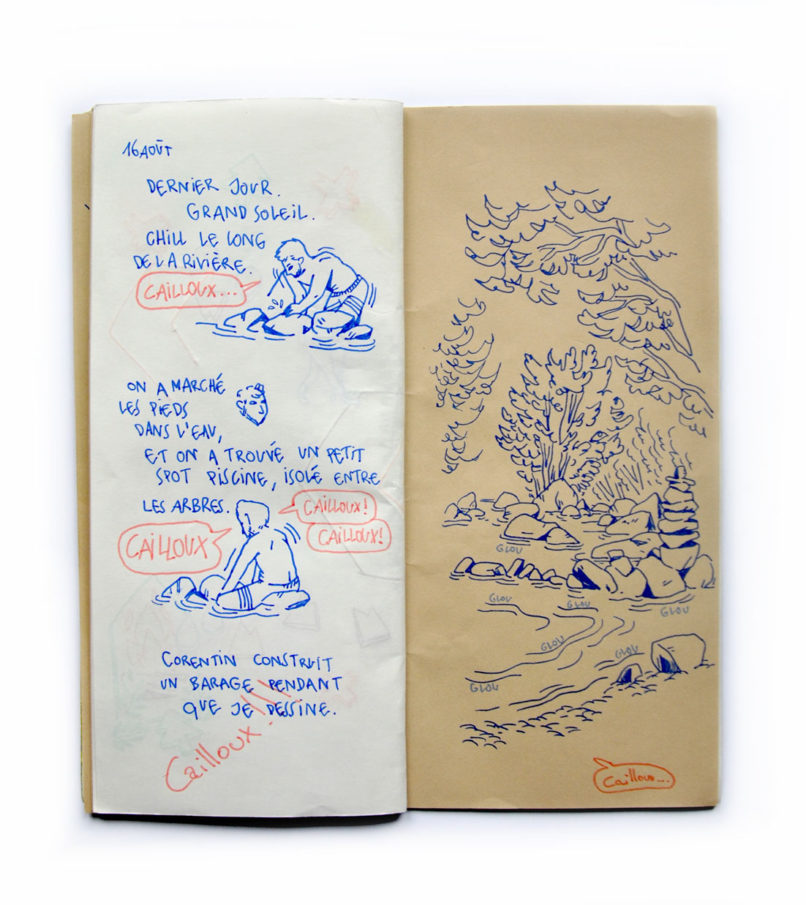 16 AOÛT
DERNIER JOUR.
GRAND SOLEIL.
CHILL LE LONG
DE LA RIVIÈRE.
CAILLOUX...
ON A MARCHÉ
LES PIEDS
DANS L'EAU,
ET ON A TROUVÉ UN PETIT
SPOT PISCINE, ISOLÉ ENTRE
LES ARBRES.
CAILLOUX!
CAILLOUX
CAILLOUX!
CORENTIN CONSTRUIT
UN BARAGE PENDANT
QUE JE DESSINE.
Cailloux!!!
GLOU
GLOU
GLOU
GLOU
GLOU
GLOU
GLOU
Cailloux...